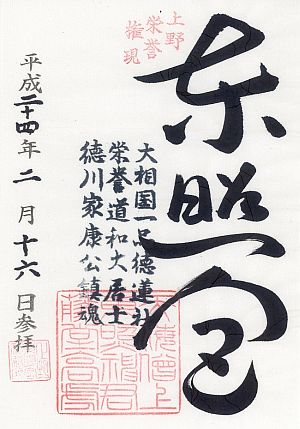 上野
栄誉
権現
東照宮
大相国一品徳蓮社
栄誉道和大居士
徳川家康公鎮魂
平成二十四年二月十六日参拝